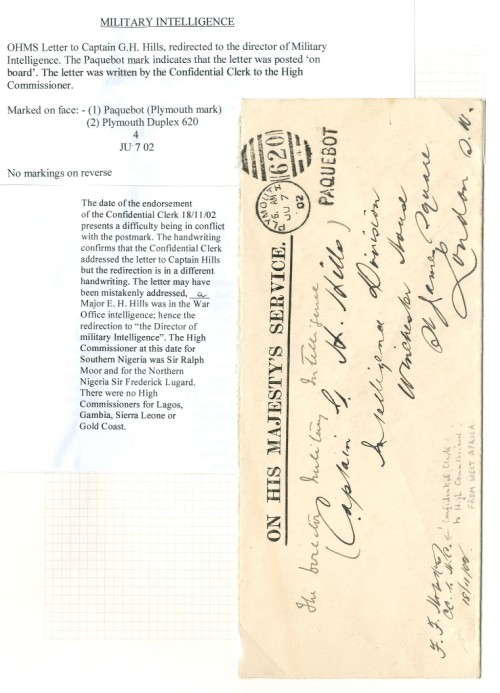 MILITARY INTELLIGENCE
OHMS Letter to Captain G.H. Hills, redirected to the director of Military
Intelligence. The Paquebot mark indicates that the letter was posted 'on
board'. The letter was written by the Confidential Clerk to the High
Commissioner.
Marked on face: - (1) Paquebot (Plymouth mark)
(2) Plymouth Duplex 620
4
JU 7 02
No markings on reverse
The date of the endorsement
of the Confidential Clerk 18/11/02
presents a difficulty being in conflict
with the postmark. The handwriting
confirms that the Confidential Clerk
addressed the letter to Captain Hills
but the redirection is in a different
handwriting. The letter may have
been mistakenly addressed, a
Major E. H. Hills was in the War
Office intelligence; hence the
redirection to "the Director of
military Intelligence". The High
Commissioner at this date for
Southern Nigeria was Sir Ralph
Moor and for the Northern
Nigeria Sir Frederick Lugard.
There were no High
Commissioners for Lagos,
Gambia, Sierra Leone or
Gold Coast.
620
JU 7
02
PAQUEBOT
ON HIS MAJESTY'S SERVICE.
The Director Military Intelligence
(Captain G. H. Hills)
Intelligence Division
Winchester House
St James Square
London S.W.
F. F.
Confidential Clerk
to High Commissioner
FROM WEST AFRICA
18/11/02